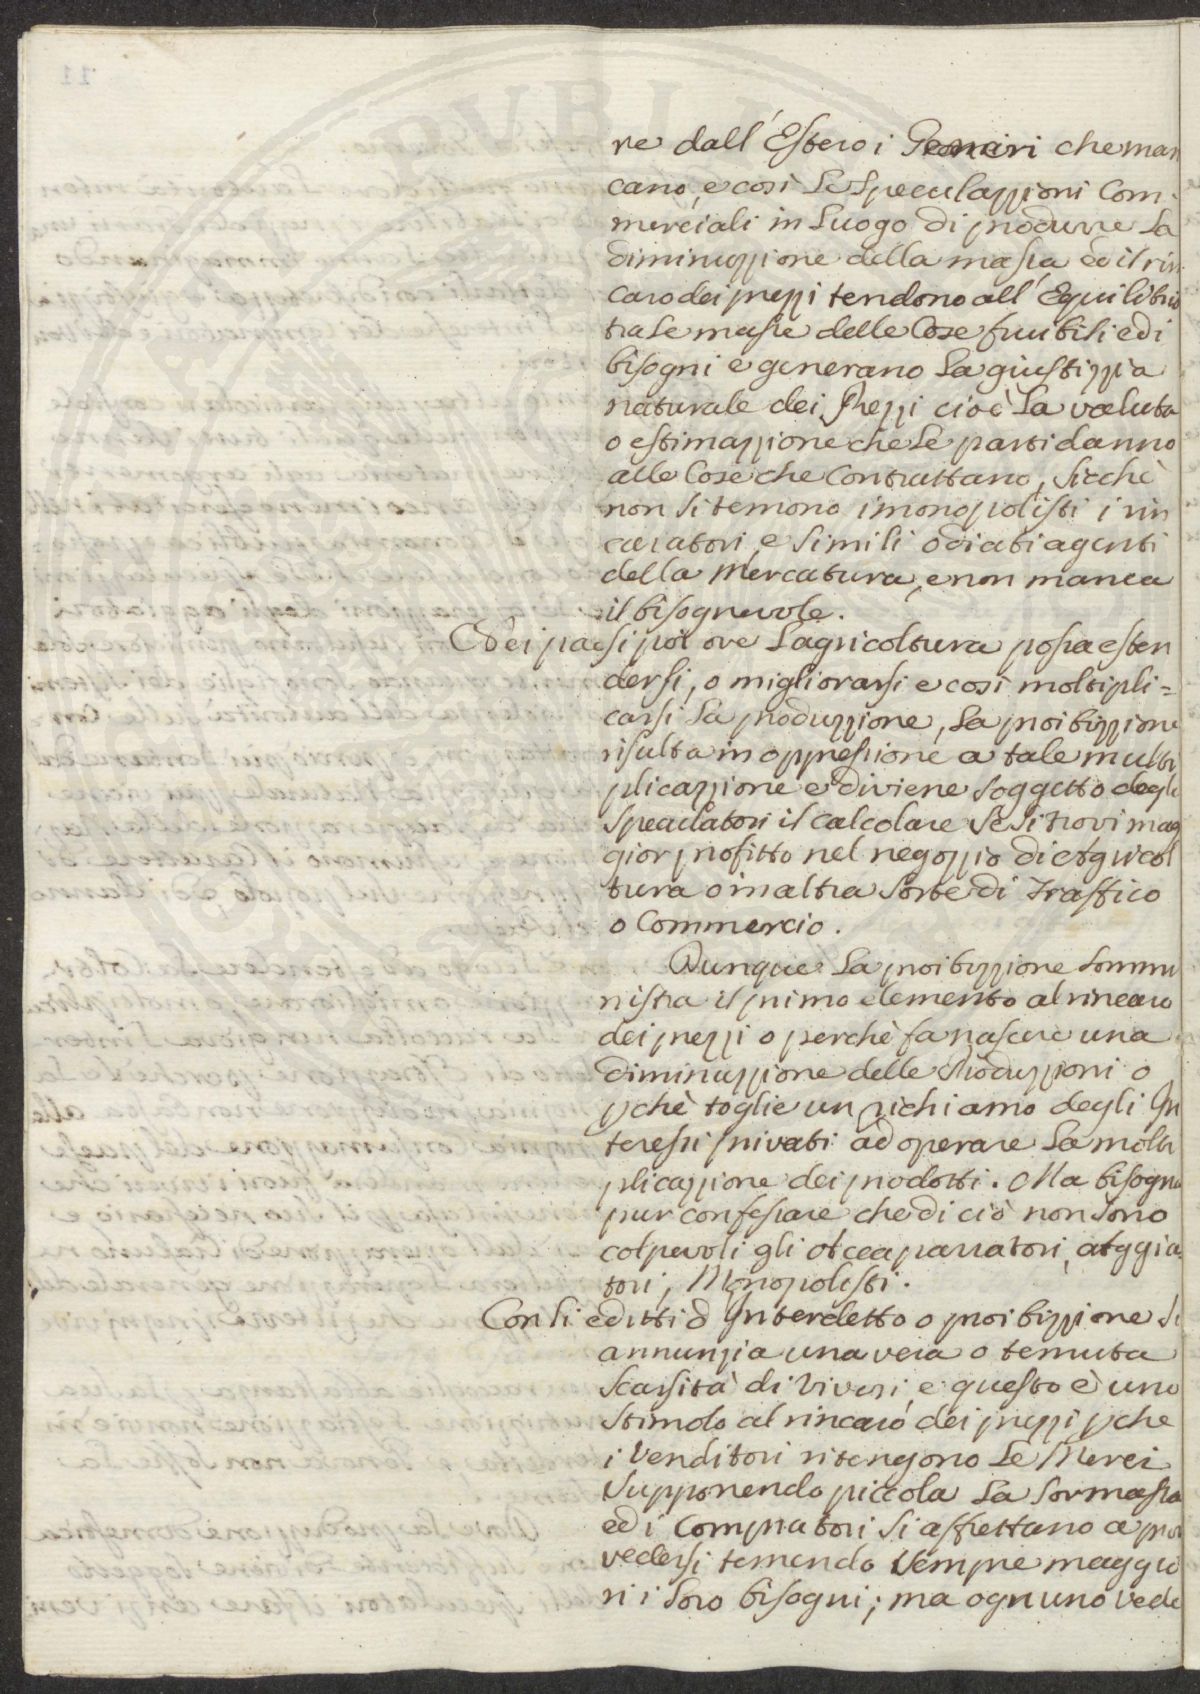 re dall'Estero i Generi che man
cano, e così le speculazzioni Com-
merciali in luogo di produrre la
diminuzzione della massa ed il rin
caro dei prezzi tendono all'Equilibrio
tra le masse delle Cose fruibili ed i
bisogni e generano la giustizzia
naturale dei Prezzi cioè la valuta
o estimazzione che le parti danno
alle Cose che Contrattano, sicchè
non si temono i monopolisti i rin
caratori, e simili odiati agenti
della Mercatura, e non manca
il bisognevole.
Ed ei paesi poi ove l'agricoltura possa esten
dersi, o migliorarsi e così moltipli=
carsi la produzzione, la proibizzione
risulta in oppressione a tale multi
plicazzione e diviene soggetto degli
speculatori il calcolare se si trovi mag
gior profitto nel negozzio di Agricol
tura o in altra sorte di Traffico
o Commercio.
Dunque la proibizzione sommi
nistra il primo elemento al rincaro
dei prezzi o perchè fa nascere una
diminuzzione delle Produzzioni o
pchè toglie un richiamo degli In
teressi privati ad operare la molti
plicazzione dei prodotti. Ma bisogna
pur confessare che di ciò non sono
colpevoli gli Accaparratori, Aggia-
tori, Monopolisti.
Con li editti d'Interdetto o proibizzione si
annunzia una vera o temuta
scarsità di Viveri, e questo è uno
stimolo al rincaro dei prezzi pche
i Venditori ritengono le Merci
supponendo piccola la lor massa
ed i Compratori si affrettano a prov
vedersi temendo sempre maggio
ri i loro bisogni; ma ognuno vede